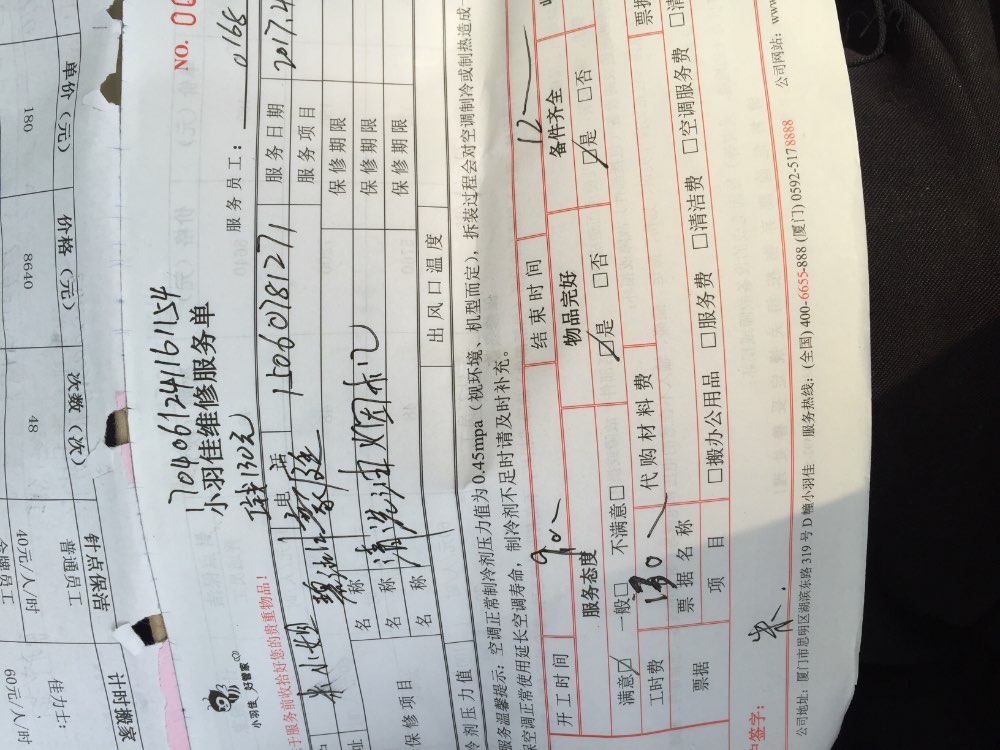 单价（元）
180
价格（元）
8640
次数（次）
48
针点保洁
普通员工
40元/人/时
金牌员工
计时搬家
佳力士：
60元/人/时
NO. 00
170406124161154
小羽佳维修服务单
小羽佳 好管家
服务员工： 0168
于服务前收拾好您的贵重物品！
钱130元
电话 15060781271 服务日期 2017.4
服务项目
保修项目
名称 清洗油烟机 保修期限
名称 保修期限
名称 保修期限
冷剂压力值 出风口温度
服务温馨提示：空调正常制冷剂压力值为0.45mpa（视环境、机型而定），拆装过程会对空调制冷或制热造成
保空调正常使用延长空调寿命，制冷剂不足时请及时补充。
开工时间 9 结束时间 12
服务态度 物品完好 备件齐全
满意☑ 一般□ 不满意□ ☑是 □否 ☑是 □否
工时费 130 代购材料费 票据
票据 票据名称 项目 □搬办公用品 □服务费 □清洁费 □空调服务费 □清
户签字： 朱
公司地址：厦门市思明区湖滨东路319号D幢小羽佳 服务热线：(全国) 400-6655-888 (厦门) 0592-5178888 公司网站：www